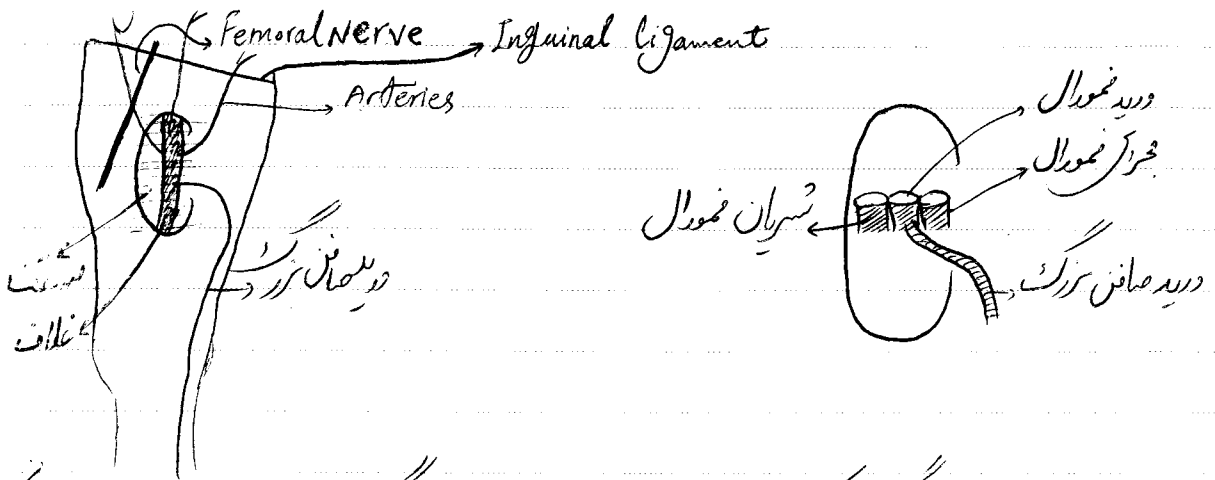 Femoral Nerve
Inguinal ligament
Arteries
ورید صافن بزرگ
غلاف
ورید فمورال
مجرای فمورال
شریان فمورال
ورید صافن بزرگ